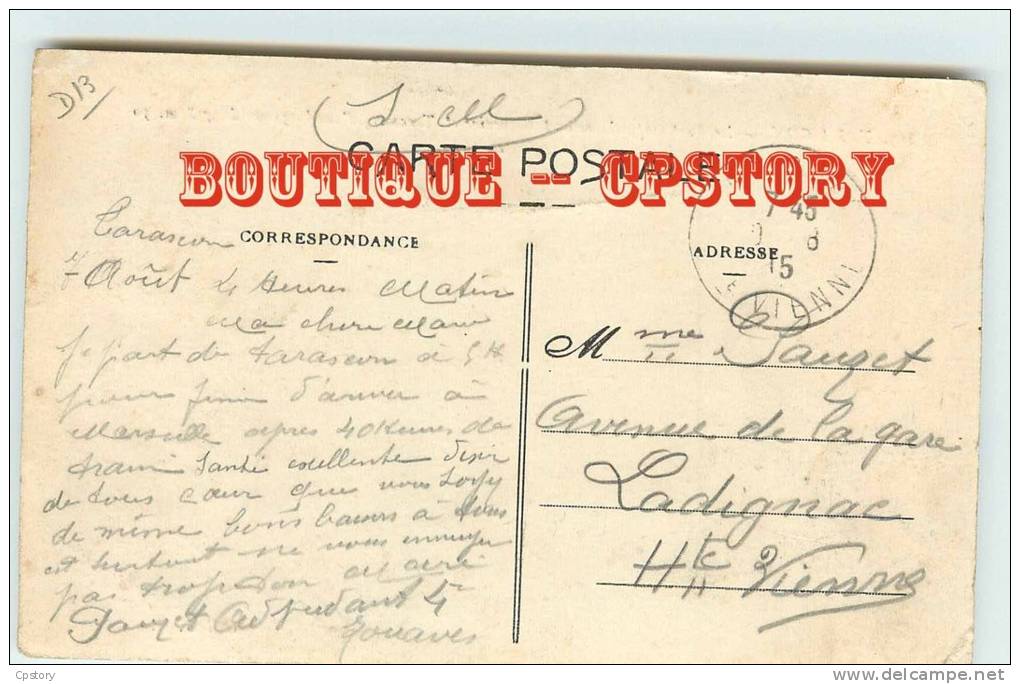 D13
CARTE POSTALE
BOUTIQUE -- CPSTORY
CORRESPONDANCE
Tarascon
7 Août 4 Heures Matin
Ma chère Marie
Je part de Tarascon à 5 H
pour finir d'arriver à
Marseille après 40 Heures de
train Santé excellente Désir
de tous cœur que vous soyy
de même bons baisers à tous
et surtout ne vous ennuyer
pas trop Ton Mari
Pauzet Adjudant 4e
Zouaves
7 45
8
15
VIENNE
ADRESSE
Mme Pauzet
Avenue de la gare
Ladignac
Hte Vienne
Cpstory
www.delcampe.net